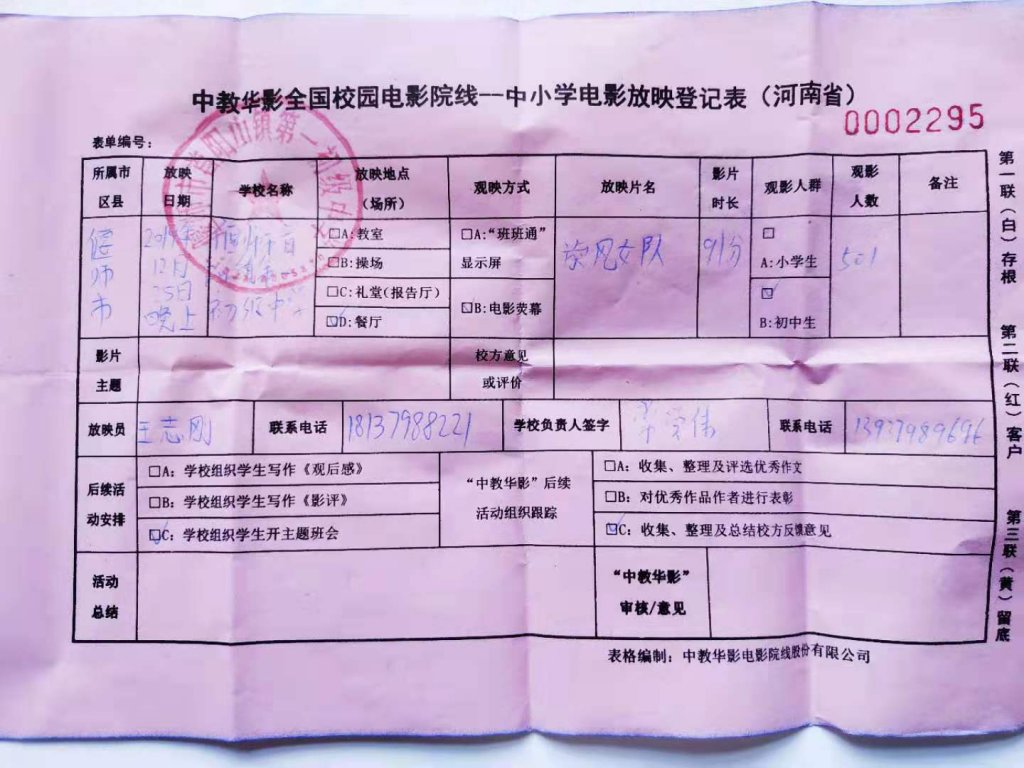 中教华影全国校园电影院线--中小学电影放映登记表（河南省）
0002295
表单编号：
所属市区县 放映日期 学校名称 放映地点（场所） 观映方式 放映片名 影片时长 观影人群 观影人数 备注
偃师市 2019年12月25日晚上 偃师市 初级中学
□A:教室
□B:操场
□C:礼堂(报告厅)
☑D:餐厅
□A:“班班通”显示屏
☑B:电影荧幕
女队 91分
□
A:小学生
☑
B:初中生
501
影片主题 校方意见或评价
放映员 王志刚 联系电话 18137988221 学校负责人签字 伟 联系电话 13937989696
后续活动安排
□A：学校组织学生写作《观后感》
□B：学校组织学生写作《影评》
☑C：学校组织学生开主题班会
“中教华影”后续活动组织跟踪
□A：收集、整理及评选优秀作文
□B：对优秀作品作者进行表彰
☑C：收集、整理及总结校方反馈意见
活动总结 “中教华影”审核/意见
表格编制：中教华影电影院线股份有限公司
第一联（白）存根
第二联（红）客户
第三联（黄）留底